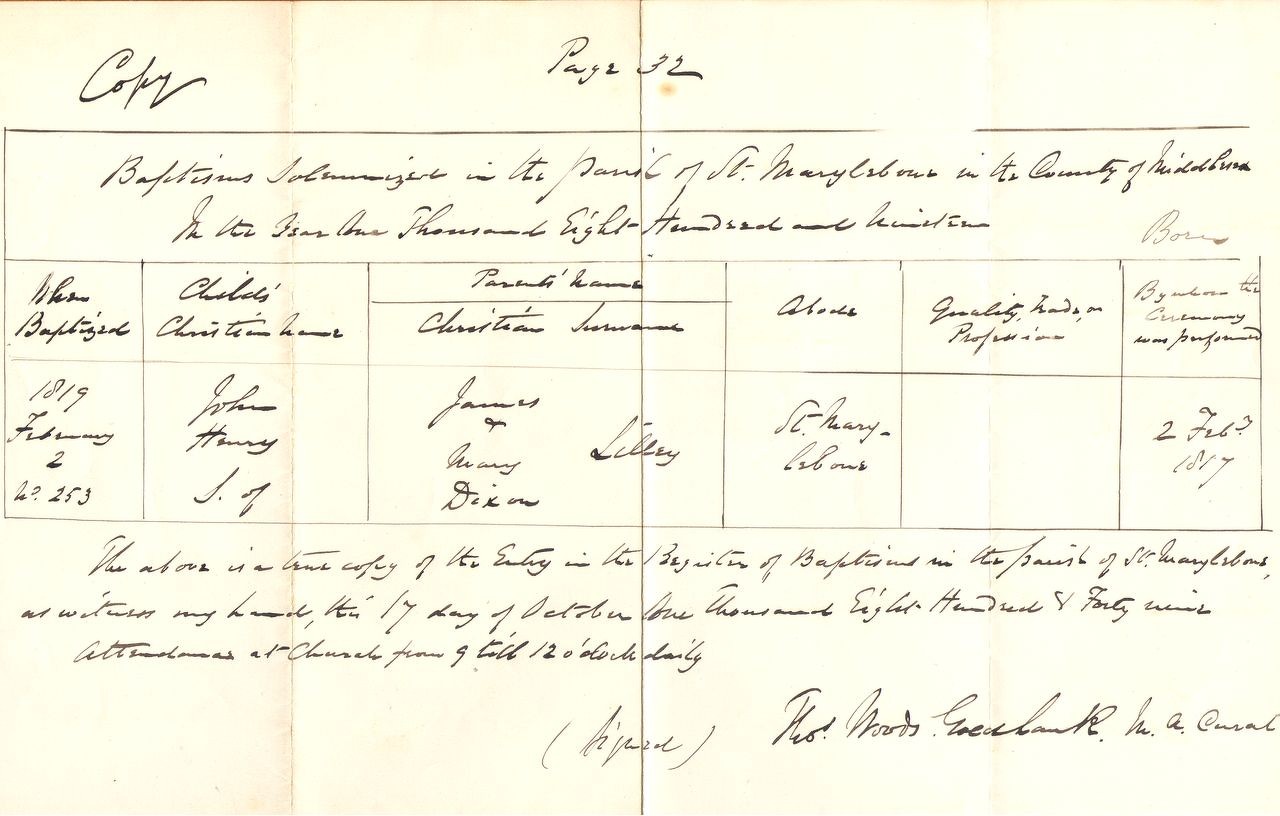 Copy
Page 32
Baptisms Solemnized in the parish of St. Marylebone in the County of Middlesex
In the Year One Thousand Eight Hundred and Nineteen
Born
When Baptized
Child's Christian name
Parents' Name
Christian Surname
Abode
Quality, Trade, or Profession
By whom the Ceremony was performed
1819 February 2 No. 253
John Henry S. of
James & Mary Dixon
Lilley
St. Mary-lebone
2 Feby 1817
The above is a true copy of the Entry in the Register of Baptisms in the parish of St. Marylebone,
as witness my hand, this 17 day of October One Thousand Eight Hundred & Forty nine
Attendance at Church from 9 till 12 o'clock daily
(Signed) Thos. Woods Goldhawk. M. A. Curat